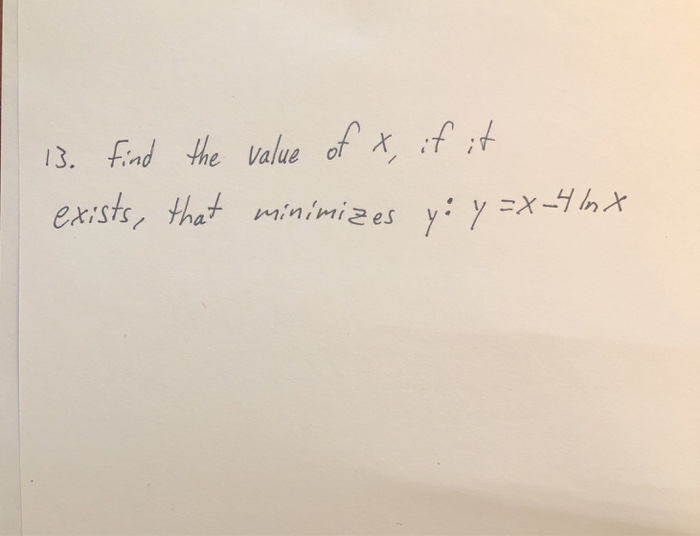 13. Find the value of x, if it
exists, that minimizes y: y = x - 4 ln x